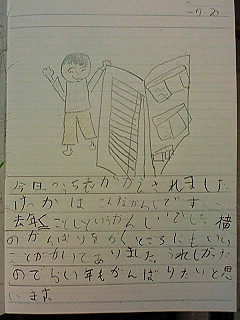 今日つうち表がかえされました
けっかはこんなかんじです。
去年とことしというかんじでした 横
のがんばりをかくところにもいい
ことがかいてありました。うれしかった
のでらい年もがんばりたいと思
います。